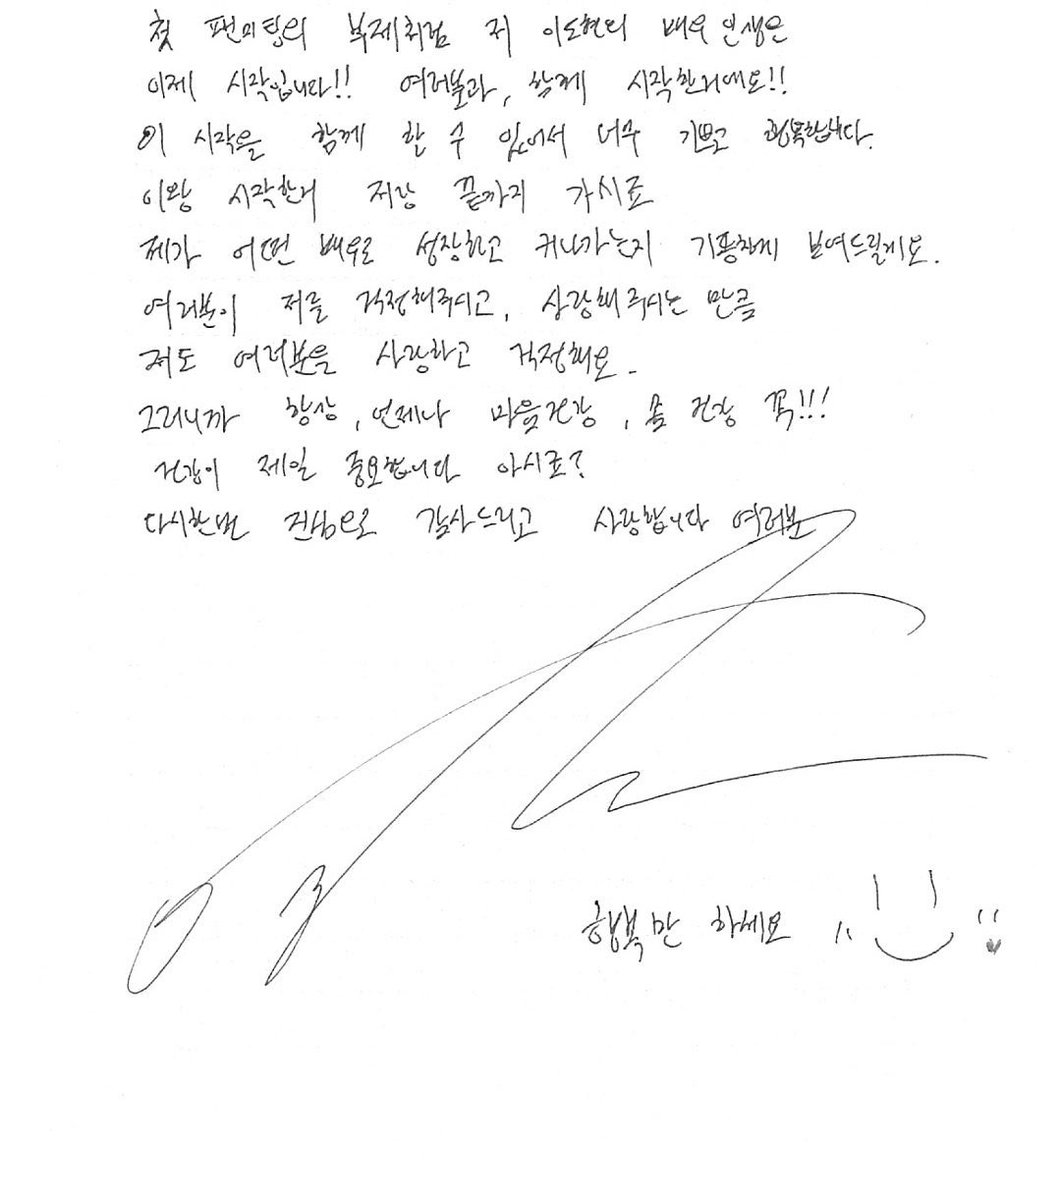 첫 팬미팅의 부제처럼 저 이도현의 배우 인생은
이제 시작입니다!! 여러분과, 함께 시작한거에요!!
이 시작을 함께 할 수 있어서 너무 기쁘고 행복합니다.
이왕 시작한거 저랑 끝까지 가시죠
제가 어떤 배우로 성장하고 커나가는지 기똥차게 보여드릴게요.
여러분이 저를 걱정해주시고, 사랑해주시는 만큼
저도 여러분을 사랑하고 걱정해요.
그러니까 항상, 언제나 마음건강, 몸 건강 꼭!!!
건강이 제일 중요합니다 아시죠?
다시한번 진심으로 감사드리고 사랑합니다 여러분
행복만 하세요